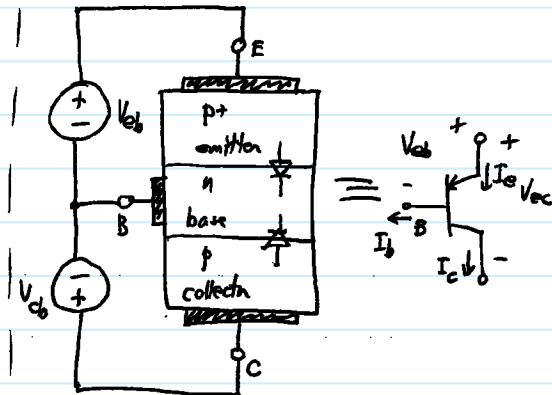 E
+
Veb
-
p+
emitter
n
base
B
p
collector
-
Vcb
+
C
Veb + +
Ie
Vec
-
Ib B
Ic -